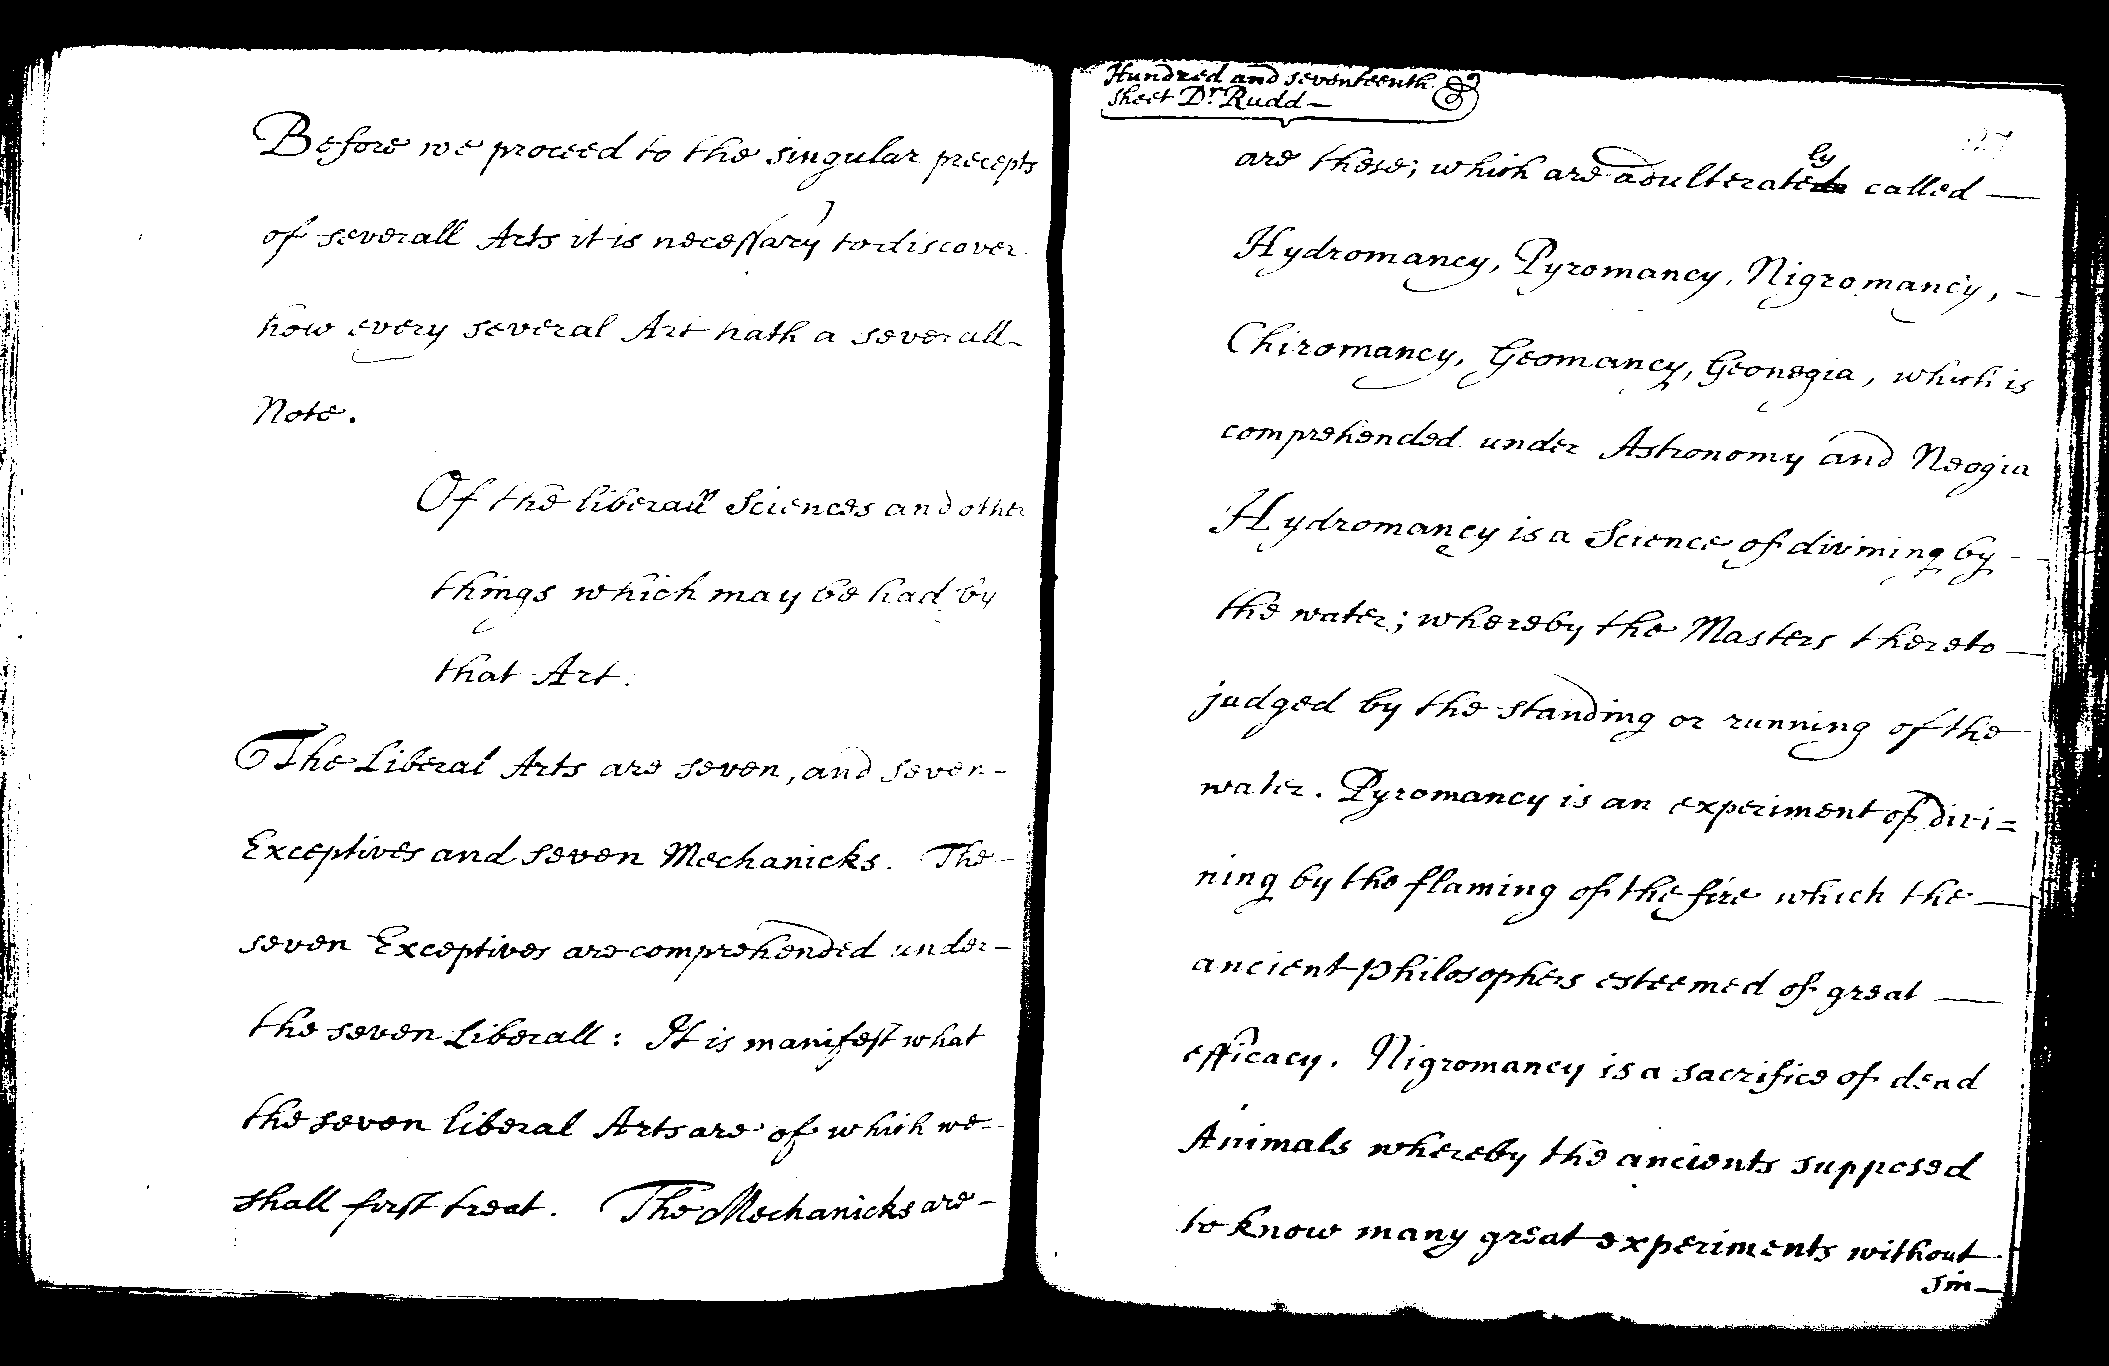 Before we proceed to the singular precepts
of severall Arts it is necessary to discover
how every several Art hath a severall
Note.
Of the liberall Sciences and other
things which may be had by
that Art.
The Liberal Arts are seven, and seven
Exceptives and seven Mechanicks. The
seven Exceptives are comprehended under
the seven Liberall: It is manifest what
the seven liberal Arts are of which we
shall first treat. The Mechanicks are
Hundred and seventeenth
sheet Dr Rudd
are these; which are adulterately called
Hydromancy, Pyromancy, Nigromancy,
Chiromancy, Geomancy, Geonegia, which is
comprehended under Astronomy and Neogia
Hydromancy is a Science of divining by
the water; whereby the Masters thereto
judged by the standing or running of the
water. Pyromancy is an experiment of divi=
ning by the flaming of the fire which the
ancient Philosophers esteemed of great
efficacy. Nigromancy is a sacrifice of dead
Animals whereby the ancients supposed
to know many great experiments without
sin